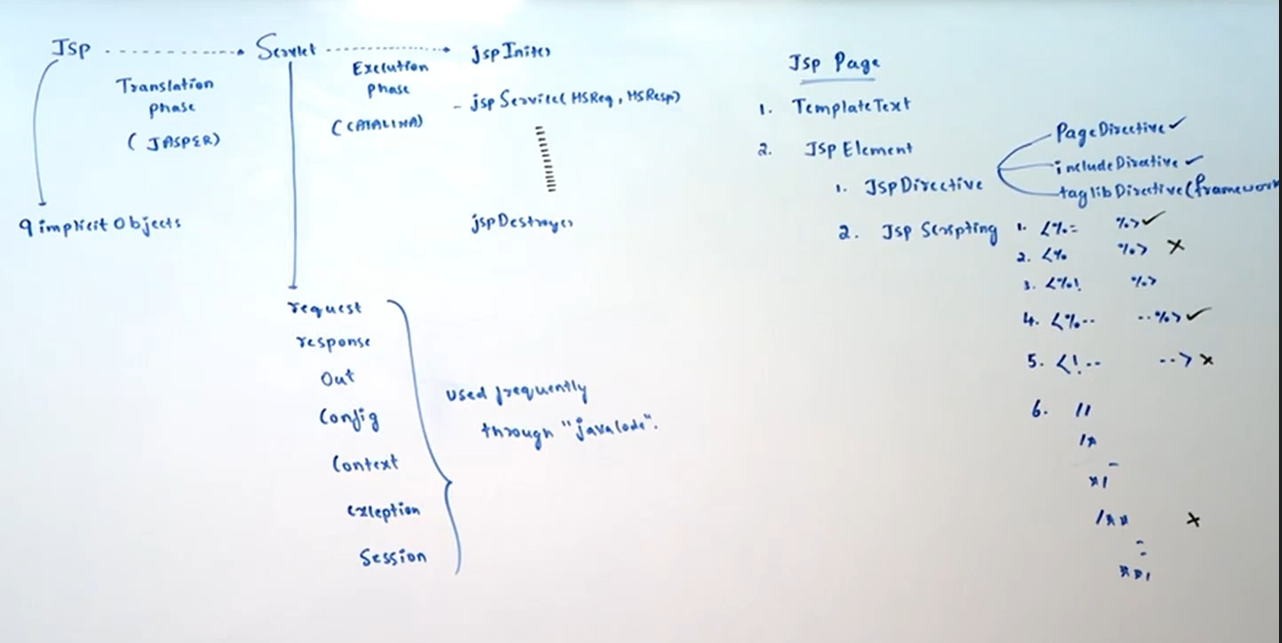 Jsp
Translation
phase
( JASPER)
9 implicit Objects
Servlet
Execution
phase
(CATALINA)
jspInit()
- jspService( HSReq, HSResp)
jspDestroy()
request
response
Out
Config
Context
exception
Session
used frequently
through "javacode".
Jsp Page
1. TemplateText
2. JspElement
1. JspDirective
PageDirective ✓
includeDirective ✓
taglibDirective(framework
2. Jsp Scripting
1. <%= %> ✓
2. <% %> ×
3. <%! %>
4. <%-- --%> ✓
5. <!-- --> ×
6. //
/*
*/
/** ×
**/